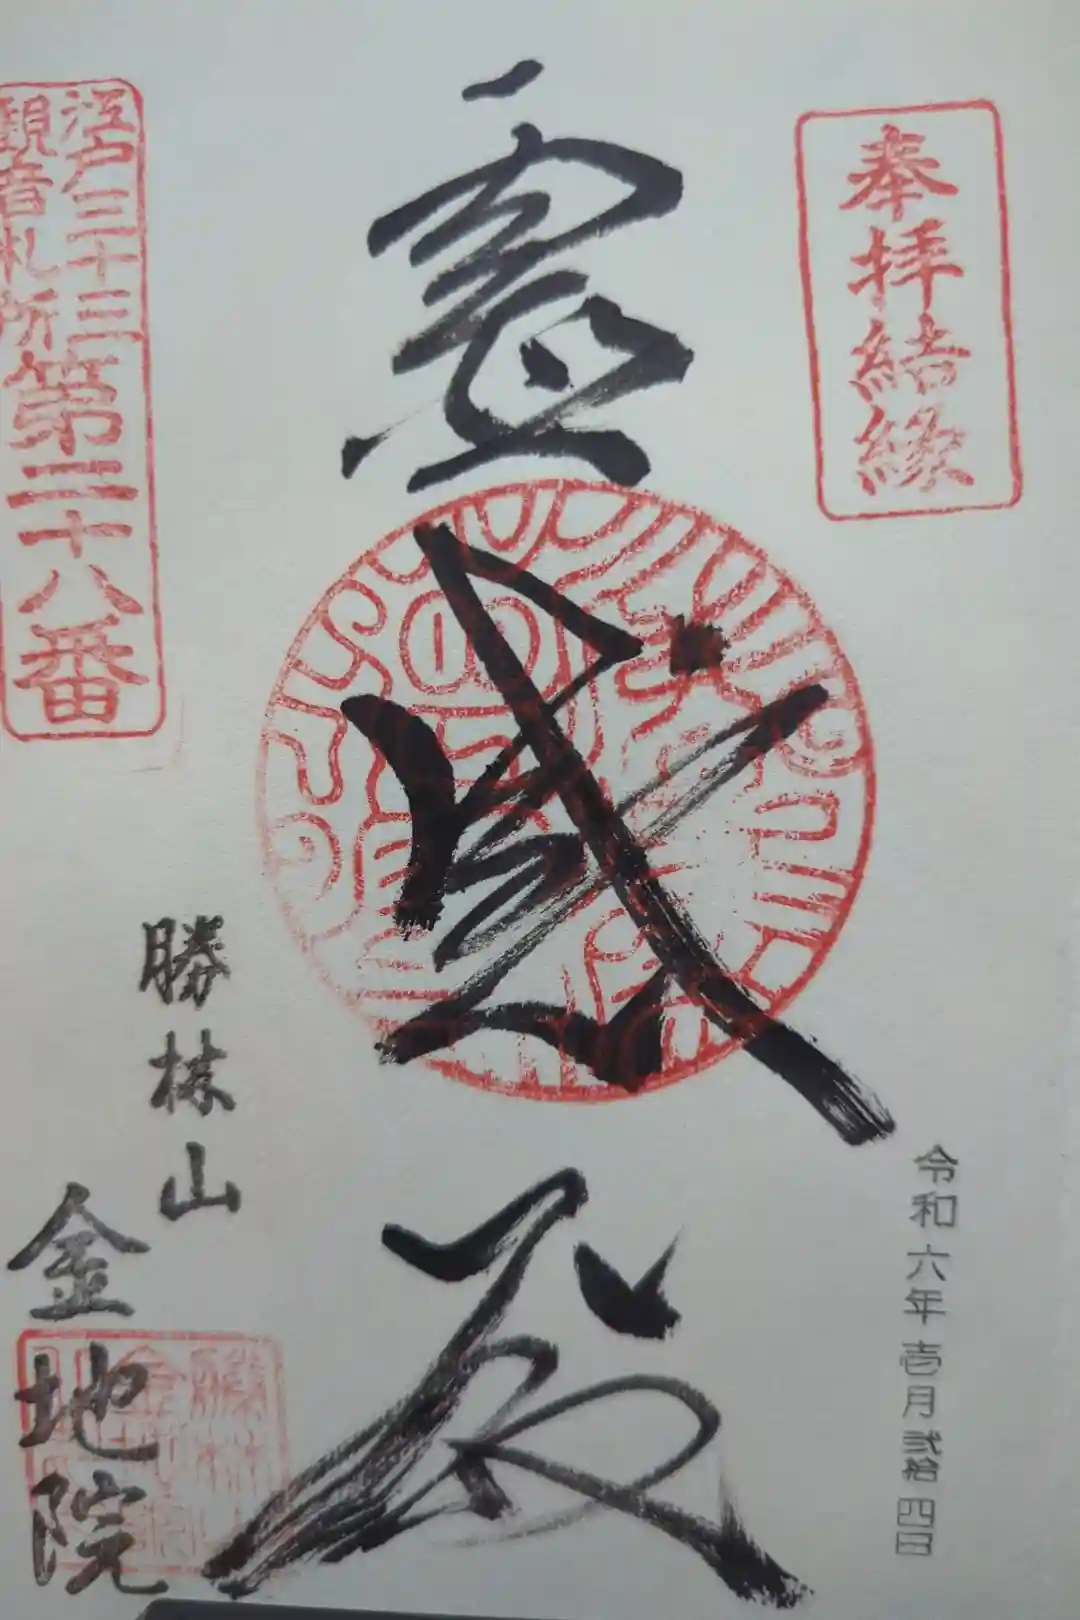 奉拝結縁
令和六年壱月弐拾四日
霊威殿
江戸三十三
観音札所
第二十八番
勝林山
金地院